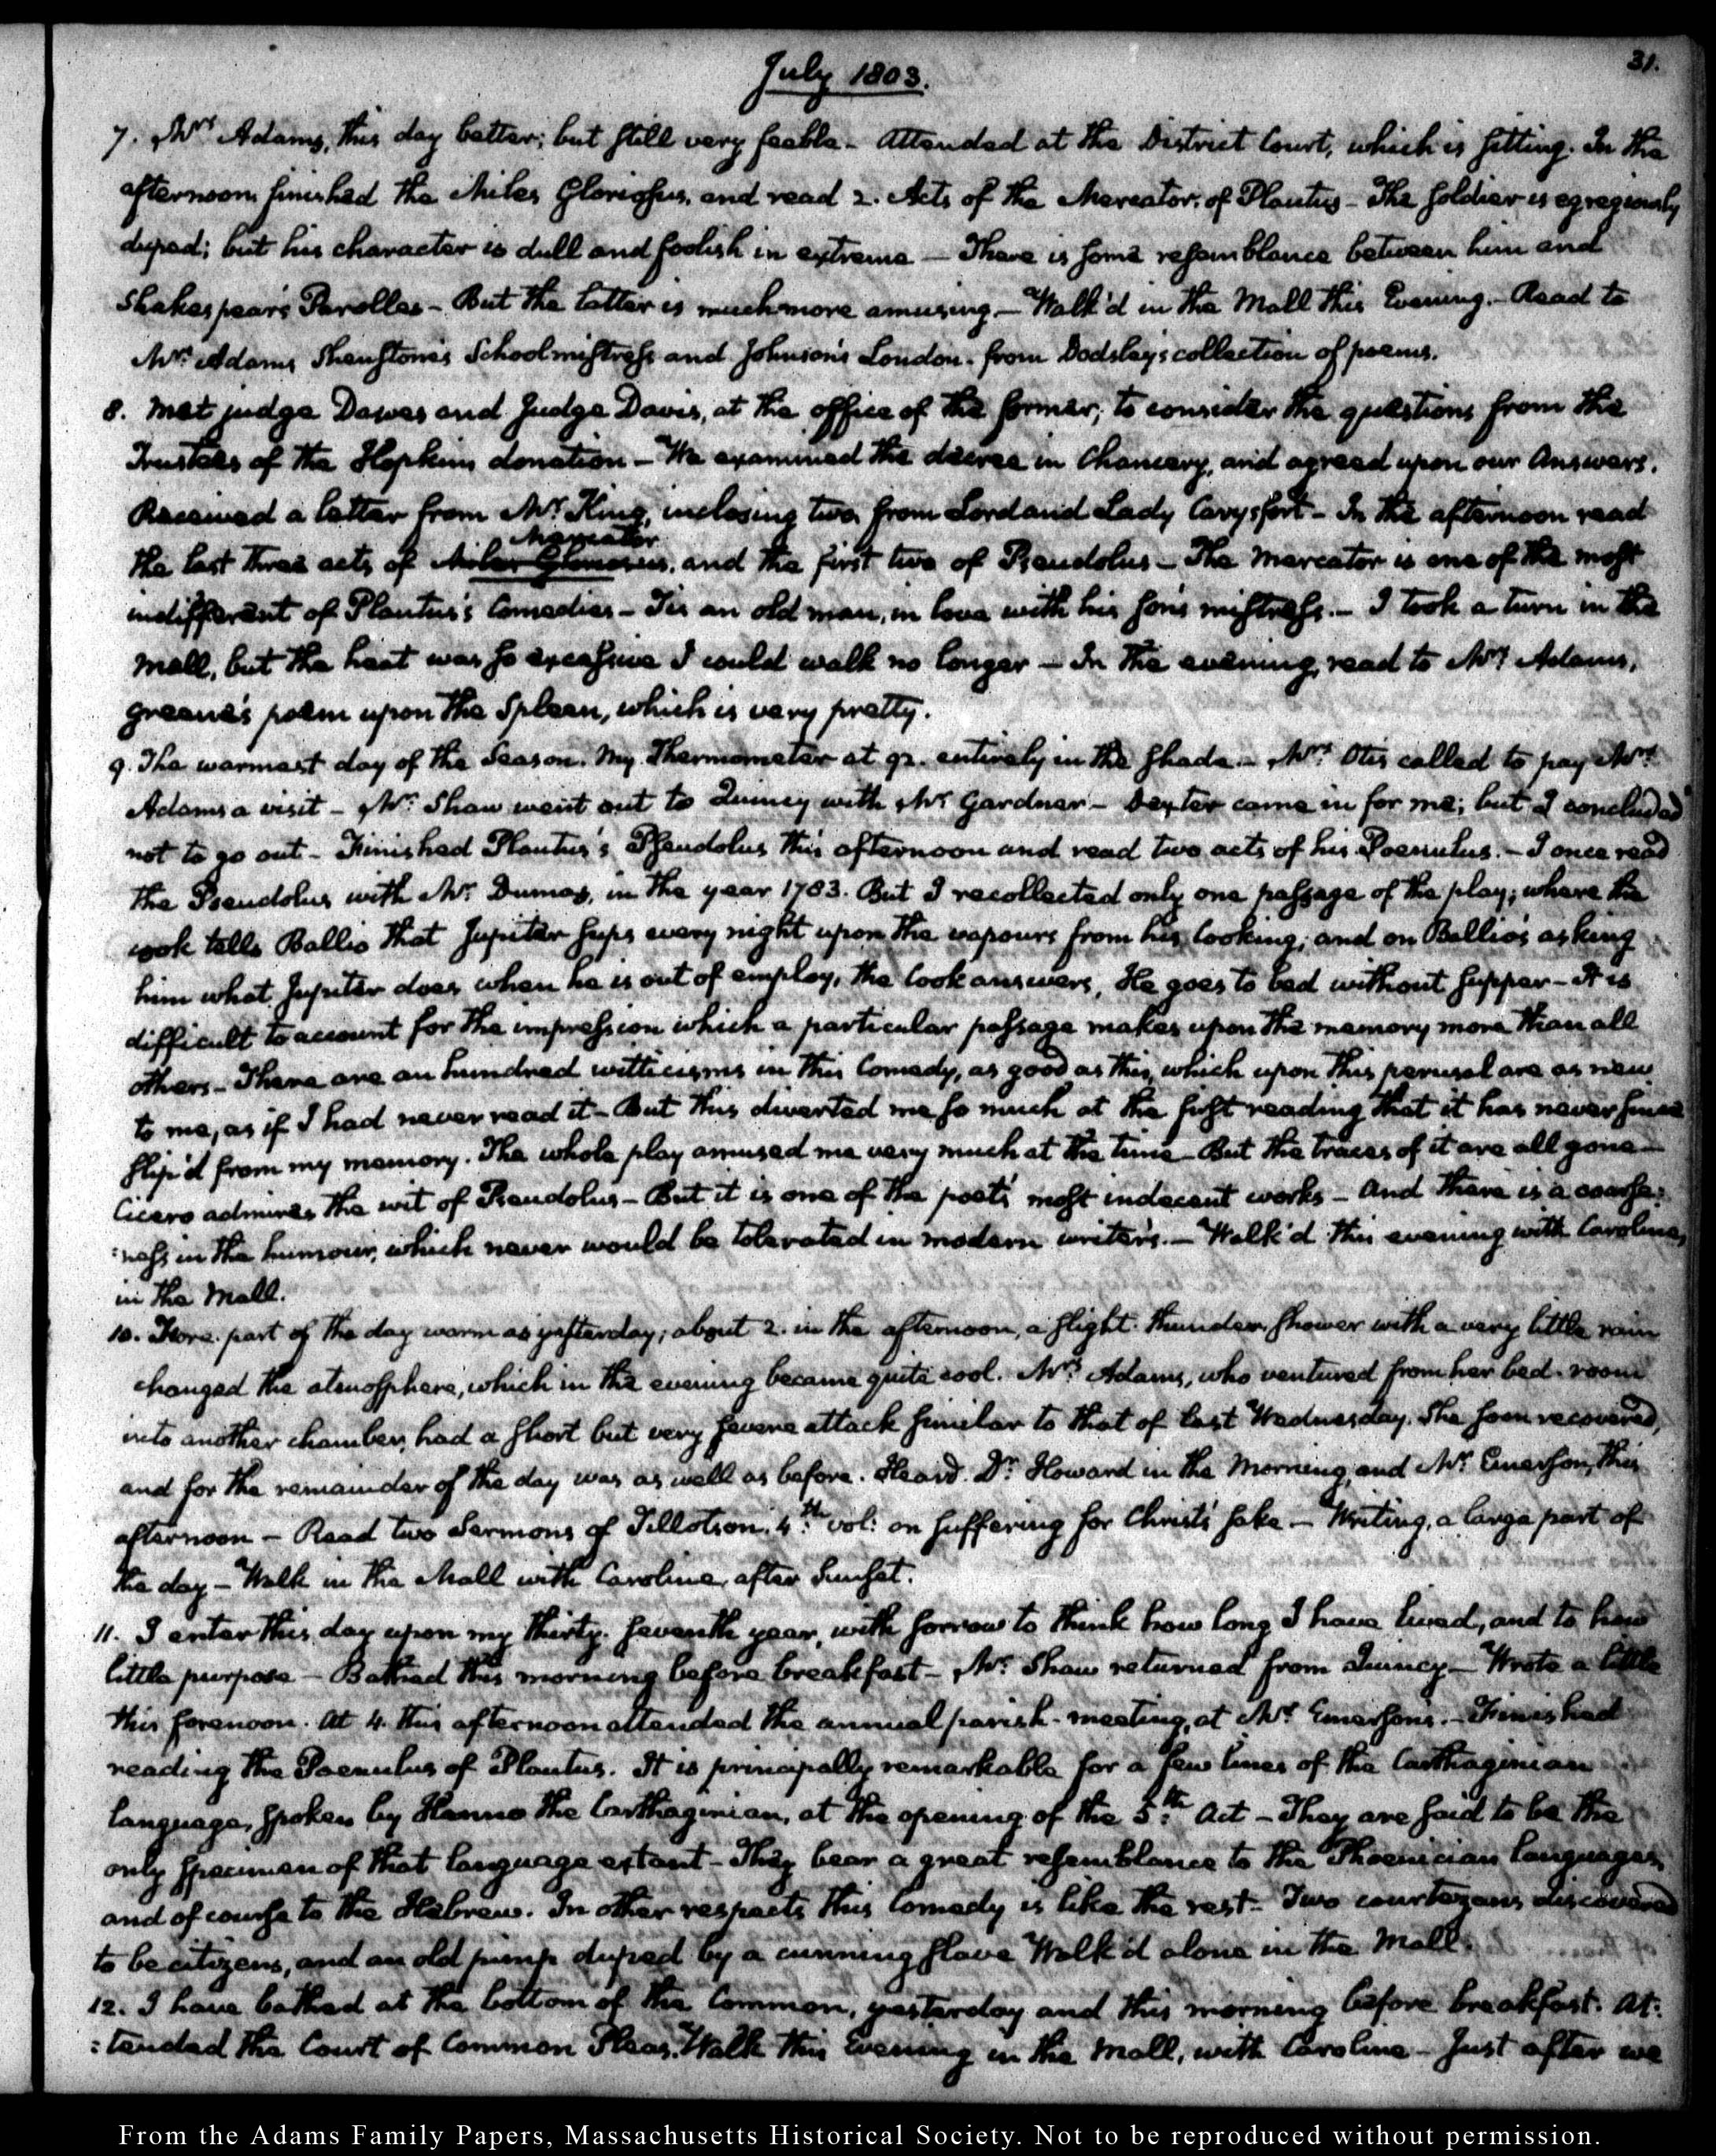 July 1803.
31.
7. Mrs Adams, this day better; but still very feeble - Attended at the District Court, which is sitting. In the
afternoon finished the Miles Gloriosus, and read 2. Acts of the Mercator, of Plautus - The soldier is egregiously
duped; but his character is dull and foolish in extreme - There is some resemblance between him and
Shakespear's Parolles - But the latter is much more amusing. - Walk'd in the Mall this Evening. - Read to
Mrs Adams Shenstone's Schoolmistress and Johnson's London. from Dodsley's collection of poems.
8. Met judge Dawes and Judge Davis, at the office of the former, to consider the questions from the
Trustees of the Hopkins donation - We examined the decree in Chancery, and agreed upon our Answers.
Received a letter from Mr King, inclosing two from Lord and Lady Carysfort - In the afternoon read
Mercator
the last three acts of Miles Gloriosus, and the first two of Pseudolus - The Mercator is one of the most
indifferent of Plautus's Comedies - Tis an old man, in love with his son's mistress. - I took a turn in the
Mall, but the heat was so excessive I could walk no longer - In the evening, read to Mrs Adams,
Greene's poem upon the Spleen, which is very pretty.
9. The warmest day of the Season. My Thermometer at 92. entirely in the shade. - Mrs Otis called to pay Mrs
Adams a visit - Mr Shaw went out to Quincy with Mr Gardner - Dexter came in for me; but I concluded
not to go out - Finished Plautus's Pseudolus this afternoon and read two acts of his Poenulus. - I once read
the Pseudolus with Mr Dumas, in the year 1783. But I recollected only one passage of the play; where the
cook tells Ballio that Jupiter sups every night upon the vapours from his cooking; and on Ballio's asking
him what Jupiter does when he is out of employ, the Cook answers, He goes to bed without supper - It is
difficult to account for the impression which a particular passage makes upon the memory more than all
others - There are an hundred witticisms in this Comedy, as good as this, which upon this perusal are as new
to me, as if I had never read it - But this diverted me so much at the first reading that it has never since
slip'd from my memory. The whole play amused me very much at the time - But the traces of it are all gone -
Cicero admires the wit of Pseudolus - But it is one of the poet's most indecent works - And there is a coarse:
:ness in the humour, which never would be tolerated in modern writers. - Walk'd this evening with Caroline,
in the Mall.
10. Fore part of the day warm as yesterday; about 2. in the afternoon, a slight thunder shower with a very little rain
changed the atmosphere, which in the evening became quite cool. Mrs Adams, who ventured from her bed-room
into another chamber, had a short but very severe attack similar to that of last Wednesday. She soon recovered,
and for the remainder of the day was as well as before. Heard Dr Howard in the Morning, and Mr Emerson, this
afternoon - Read two Sermons of Tillotson. 4th vol: on suffering for Christ's sake - Writing, a large part of
the day - Walk in the Mall with Caroline, after Sunset.
11. I enter this day upon my thirty-seventh year, with sorrow to think how long I have lived, and to how
little purpose - Bathed this morning before breakfast - Mr Shaw returned from Quincy - Wrote a little
this forenoon. At 4. this afternoon attended the annual parish-meeting, at Mr Emerson's. - Finished
reading the Poenulus of Plautus. It is principally remarkable for a few lines of the Carthaginian
language, spoken by Hanno the Carthaginian, at the opening of the 5th Act - They are said to be the
only specimen of that language extant - They bear a great resemblance to the Phoenician languages,
and of course to the Hebrew. In other respects this Comedy is like the rest - Two courtezans discovered
to be citizens, and an old pimp duped by a cunning slave Walk'd alone in the Mall.
12. I have bathed at the bottom of the Common, yesterday and this morning before breakfast. At:
:tended the Court of Common Pleas. Walk this Evening in the Mall, with Caroline - Just after we
From the Adams Family Papers, Massachusetts Historical Society. Not to be reproduced without permission.